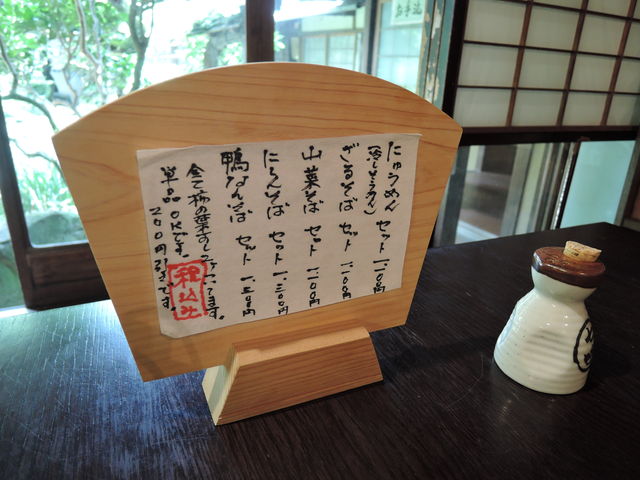 にゅうめん セット 一、一〇〇円
(冷しそうめん)
ざるそば セット 一、一〇〇円
山菜そば セット 一、一〇〇円
にしんそば セット 一、三〇〇円
鴨なんば セット 一、三〇〇円
全て柿の葉すしがつきます。
単品OKです。
200円引きです。